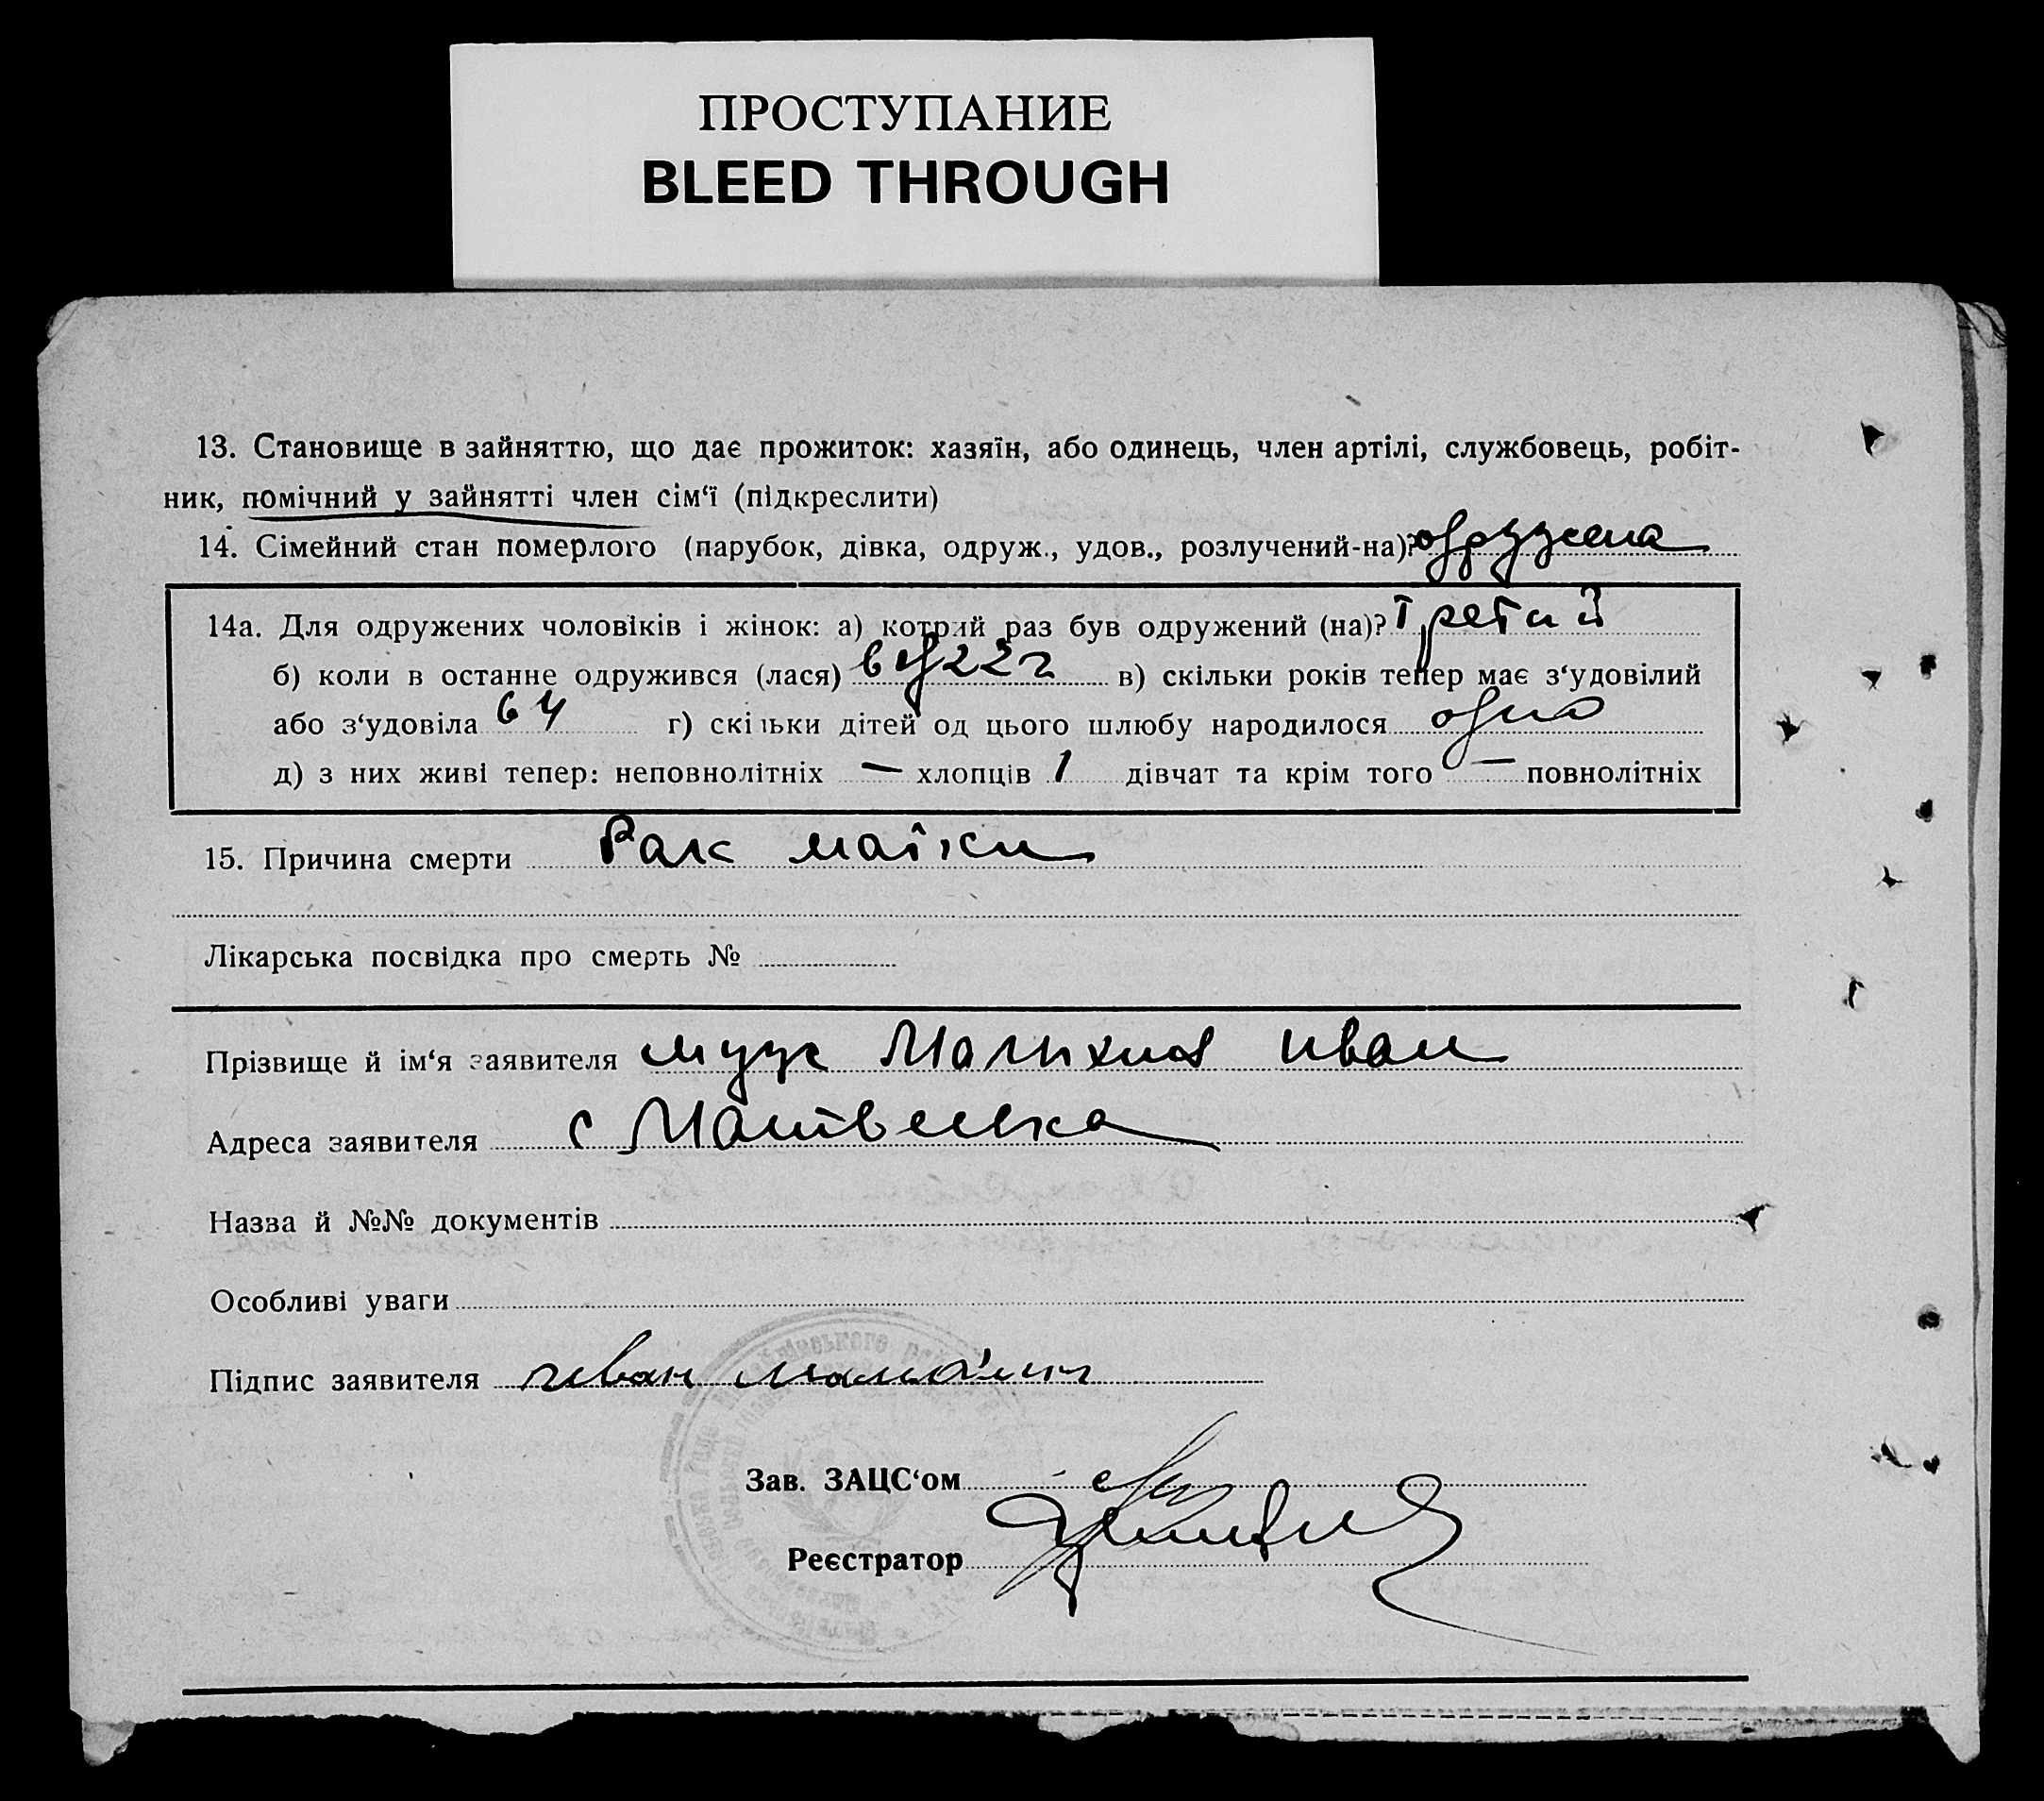 ПРОСТУПАНИЕ
BLEED THROUGH
13. Становище в зайняттю, що дає прожиток: хазяїн, або одинець, член артілі, службовець, робіт-
ник, помічний у зайнятті член сім‘ї (підкреслити)
14. Сімейний стан померлого (парубок, дівка, одруж., удов., розлучений-на)? одружена
14а. Для одружених чоловіків і жінок: а) котрий раз був одружений (на)? Третий
б) коли в останнє одружився (лася) в 22 г в) скільки років тепер має з‘удовілий
або з‘удовіла 64 г) скільки дітей од цього шлюбу народилося одно
д) з них живі тепер: неповнолітніх — хлопців 1 дівчат та крім того — повнолітніх
15. Причина смерти Рак матки
Лікарська посвідка про смерть №
Прізвище й ім‘я заявителя муж Иван
Адреса заявителя с Матвеевка
Назва й №№ документів
Особливі уваги
Підпис заявителя Иван
Зав. ЗАЦС‘ом
Реєстратор